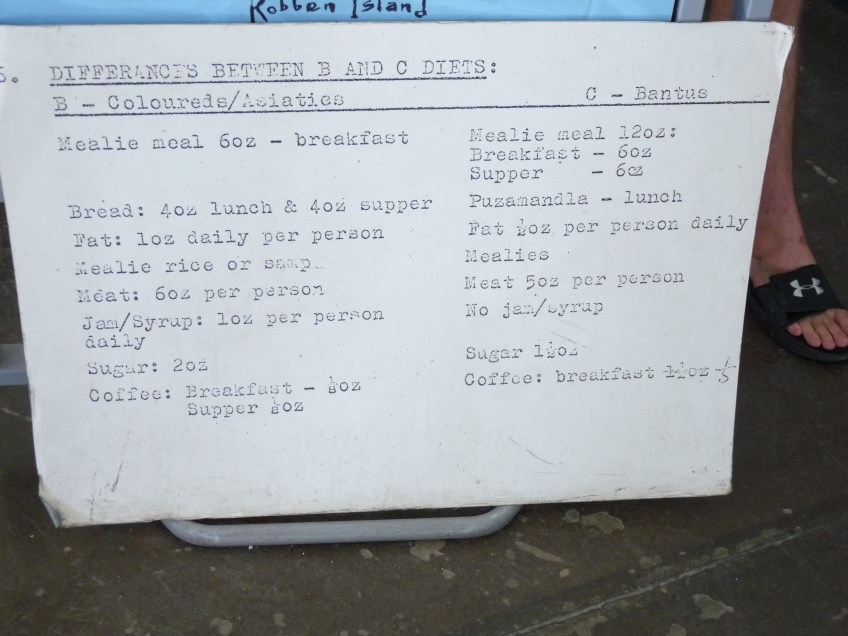 Robben Island
5. DIFFERANCES BETWEEN B AND C DIETS:
B - Coloureds/Asiaties
C - Bantus
Mealie meal 6oz - breakfast
Bread: 4oz lunch & 4oz supper
Fat: 1oz daily per person
Mealie rice or samp
Meat: 6oz per person
Jam/Syrup: 1oz per person
daily
Sugar: 2oz
Coffee: Breakfast -
Supper
Mealie meal 12oz:
Breakfast - 6oz
Supper - 6oz
Puzamandla - lunch
Fat ½oz per person daily
Mealies
Meat 5oz per person
No jam/syrup
Sugar 1½oz
Coffee: breakfast